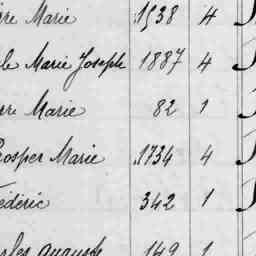 rre Marie 1938 4
le Marie Joseph 1887 4
rre Marie 82 1
rosper Marie 1734 4
rédéric 342 1
arles Auguste 149 1